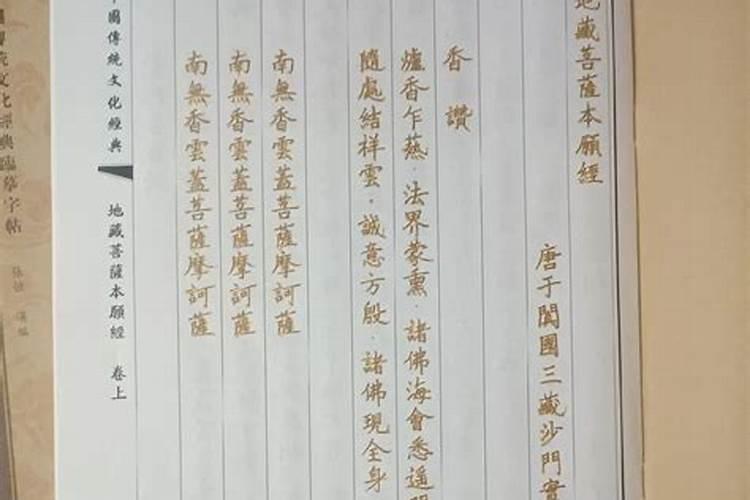 地藏菩薩本願經
唐于闐國三藏沙門實
香讚
爐香乍爇．法界蒙熏．諸佛海會悉遙
隨處結祥雲．誠意方殷．諸佛現全身
南無香雲蓋菩薩摩訶薩
南無香雲蓋菩薩摩訶薩
南無香雲蓋菩薩摩訶薩
國傳統文化經典
地藏菩薩本願經 卷上
統文化經典臨摹字帖